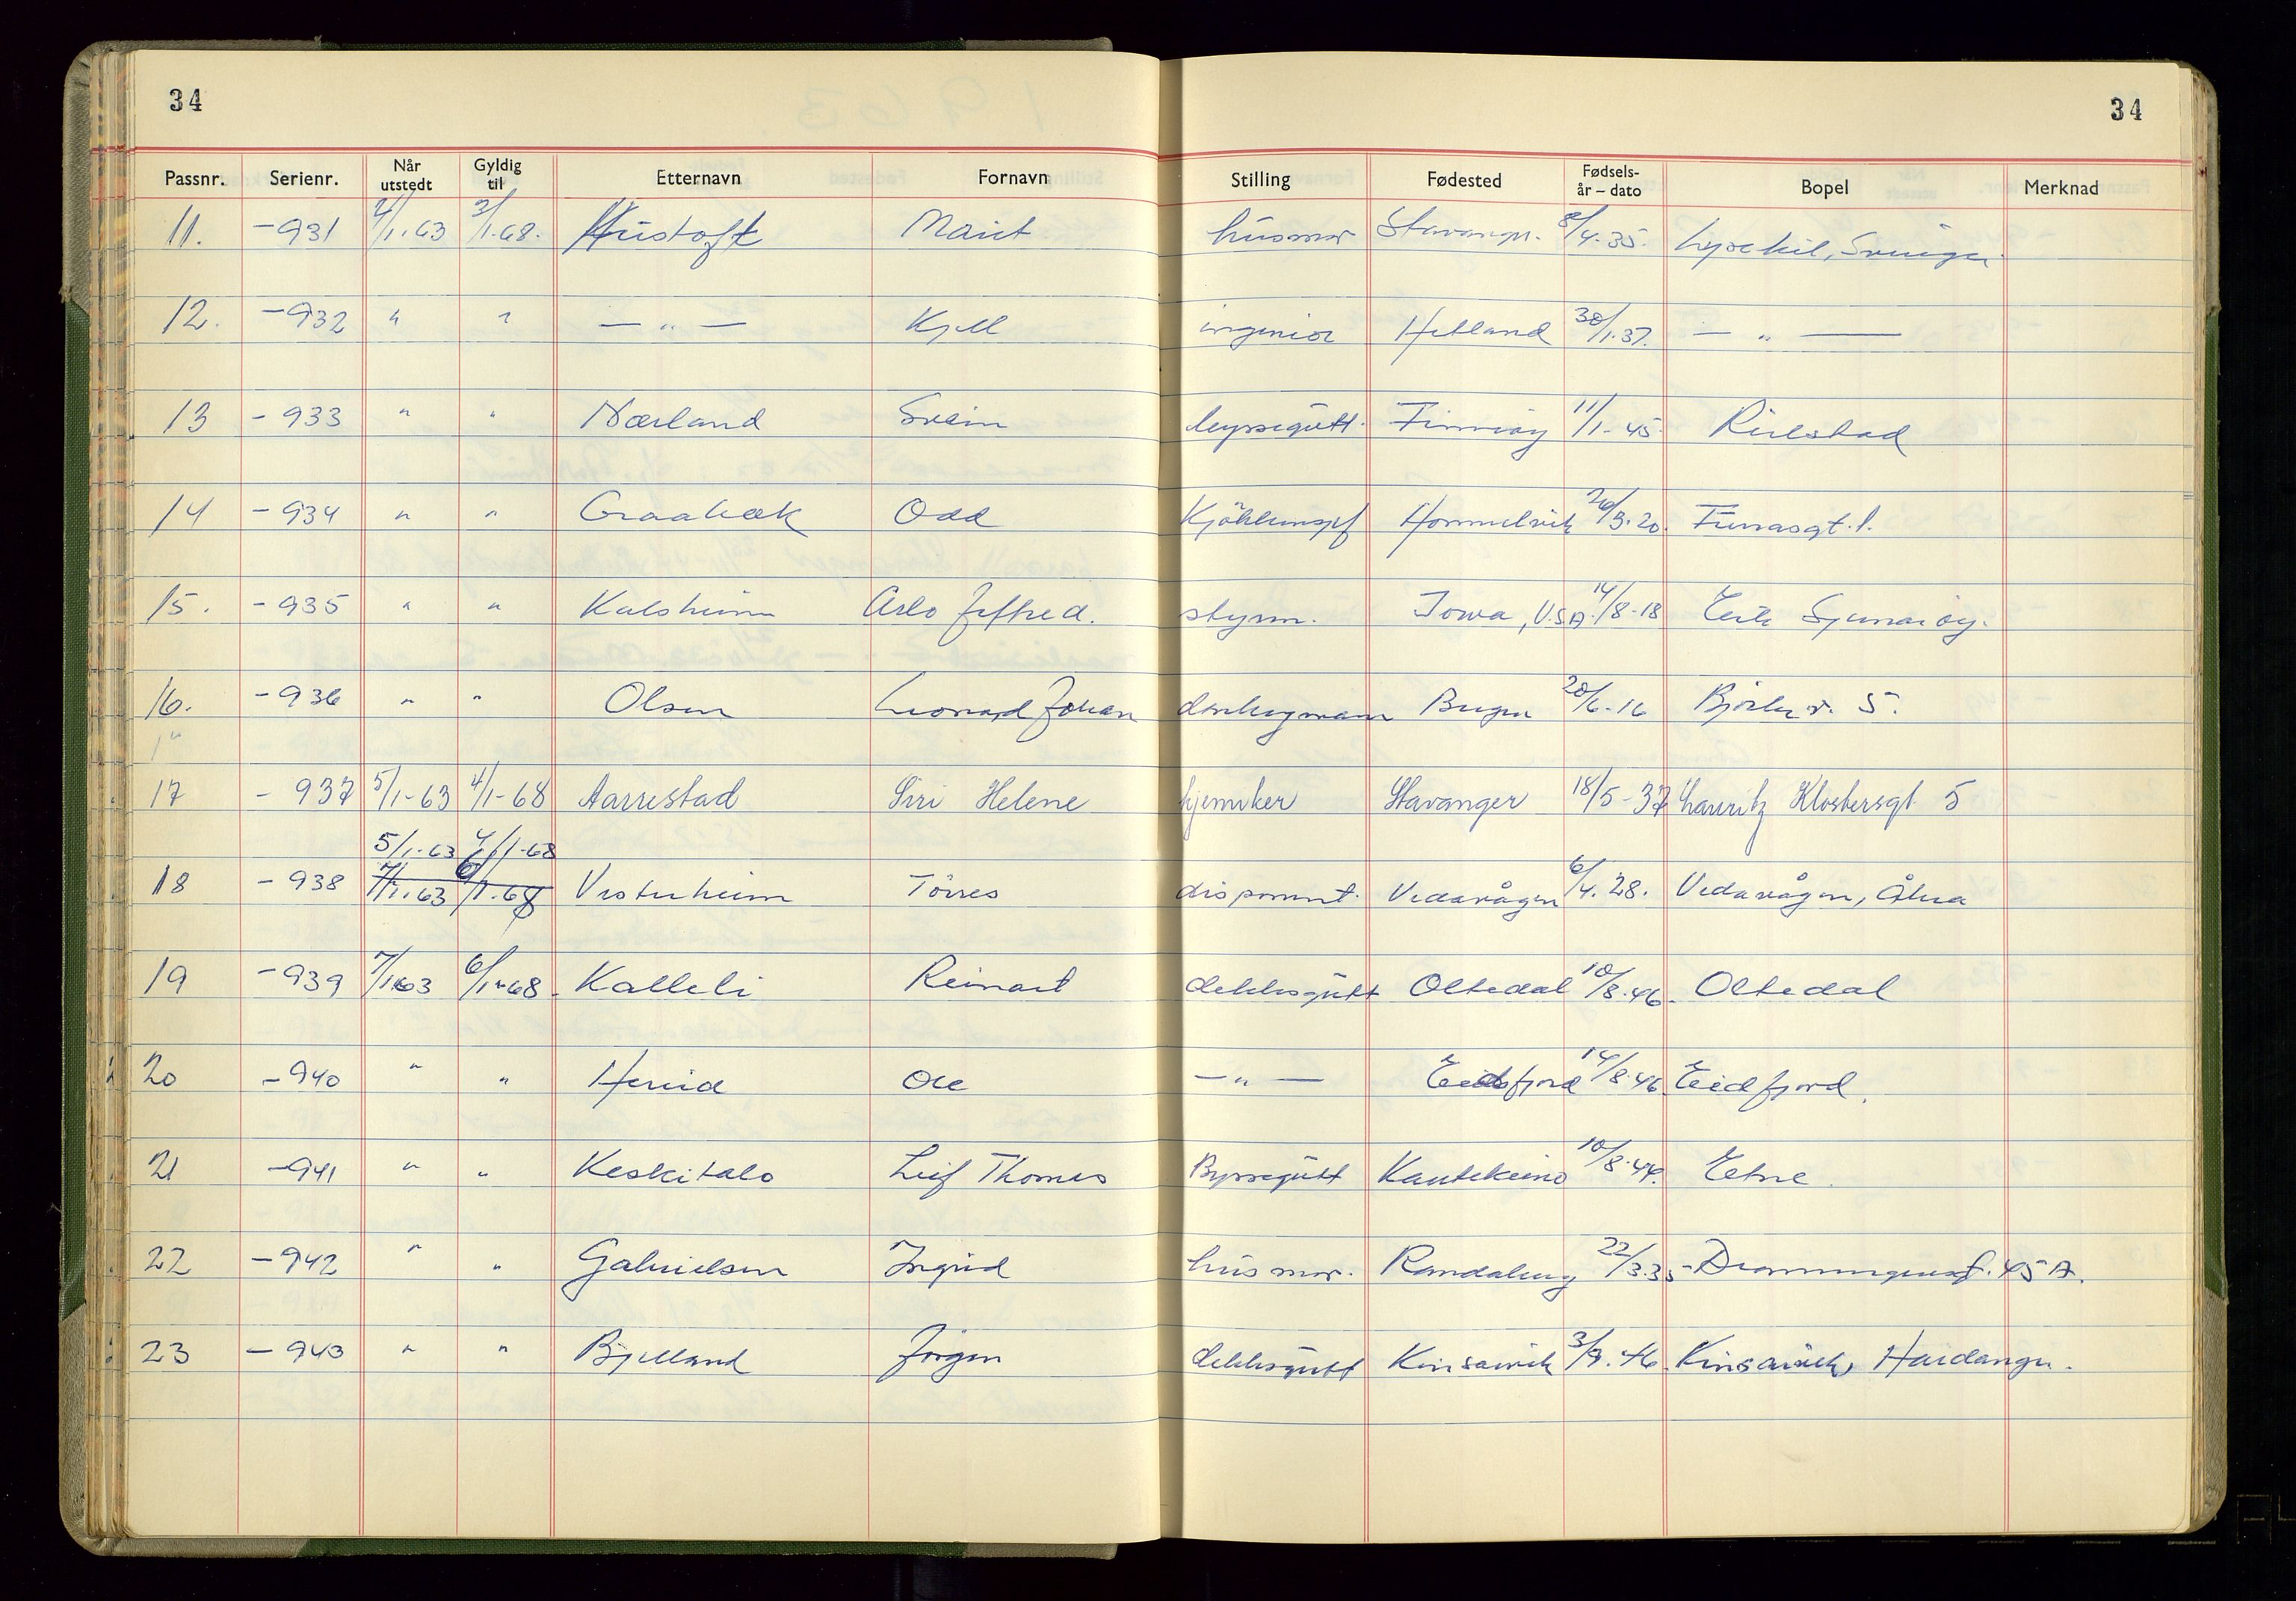 34 34
Passnr. Serienr. Når utstedt Gyldig til Etternavn Fornavn Stilling Fødested Fødsels-år – dato Bopel Merknad
11. -931 4/1.63 3/1.68. Hustoft Marit husmor Stavanger. 8/4.35. Lysekil, Sverige.
12. -932 " " — " — Kjell ingeniør Hetland 30/1.37. — " —
13 -933 " " Nærland Svein byssegutt. Finnøy 11/1-45
14 -934 " " Odd Hommelvik
15. -935 " " Kalsheim Arlo Jeffred. styrm. Iowa, U.S.A. 14/8-18 Sjernarøy.
16. -936 " " Olsen Leonard Johan donkeymann Bergen 20/6-16 5.
17 -937 5/1-63 4/1-68 Aarrestad Siri Helene kjemiker Stavanger 18/5-37 Lauritz Klostersgt 5
5/1-63 4/1-68
18 -938 7/1.63 6/1.68 Vesterheim Törres disponent. Vedavågen 6/4.28. Vedavågen, Åkra
19 -939 7/1.63 6/1-68. Kalleli Reinart dekksgutt Oltedal 10/8.46. Oltedal
20 -940 " " Ole — " — Eidsfjord 14/8.46. Eidfjord.
21 -941 " " Keskitalo Leif Thomas Byssegutt Kautokeino 10/8.44. Etne
22 -942 " " Gabrielsen Ingrid husmor. Randaberg 22/3.35 - Dronningensgt. 45 A.
23 -943 " " Bjelland Jörgen dekksgutt Kinsarvik 3/9.46. Kinsarvik, Hardanger.